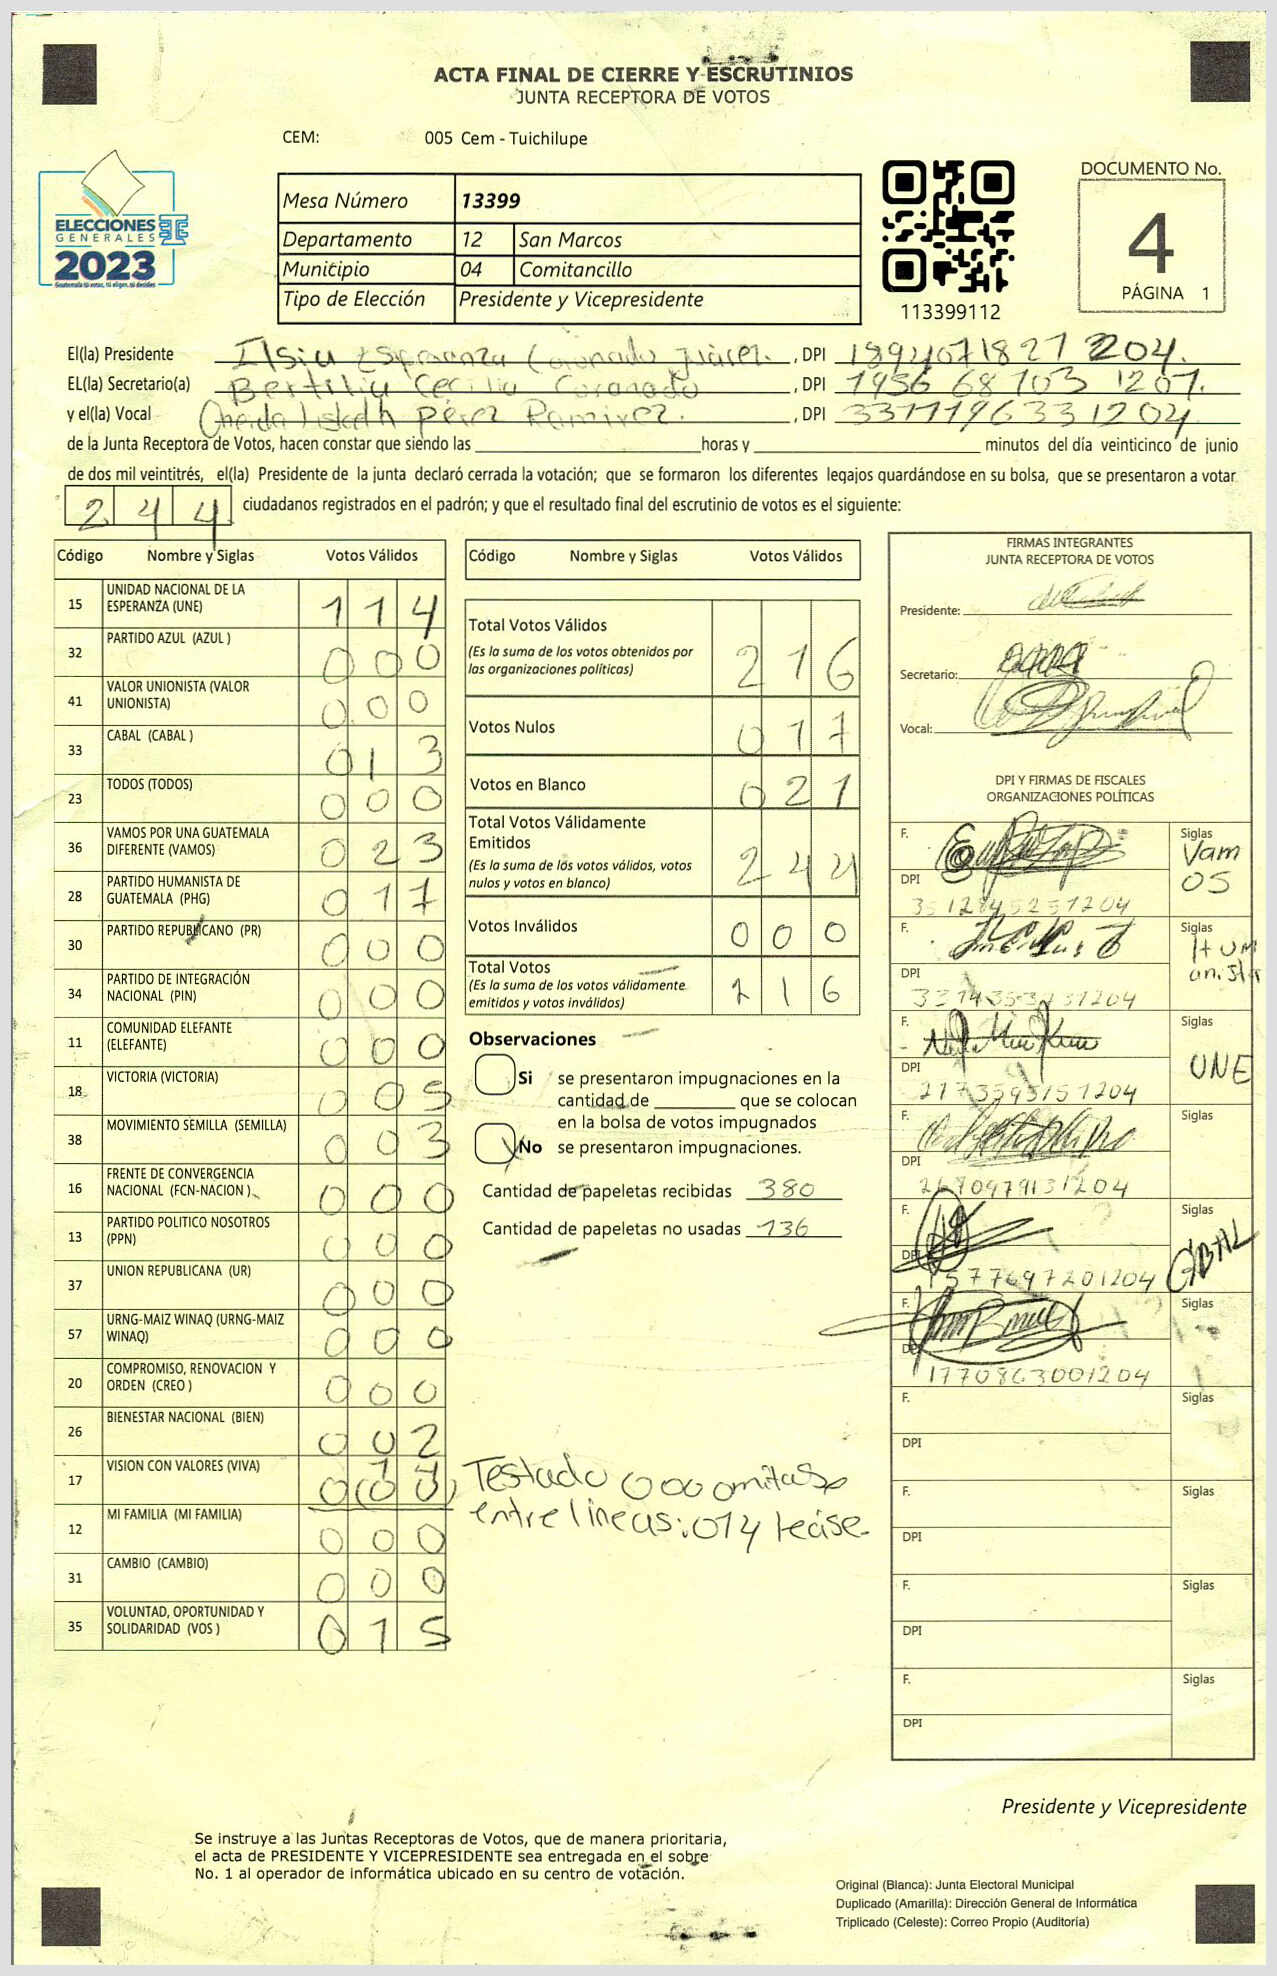 ACTA FINAL DE CIERRE Y ESCRUTINIOS
JUNTA RECEPTORA DE VOTOS
CEM: 005 Cem - Tuichilupe
ELECCIONES
GENERALES
2023
Guatemala tú votas, tú eliges, tú decides
Mesa Número 13399
Departamento 12 San Marcos
Municipio 04 Comitancillo
Tipo de Elección Presidente y Vicepresidente
113399112
DOCUMENTO No.
4
PÁGINA 1
El(la) Presidente Ilsia Esperanza Coronado Juárez. , DPI 1894071827 204.
EL(la) Secretario(a) Bertilia Cecilia Coronado , DPI 1956 68703 1207.
y el(la) Vocal Lisbeth Pérez Ramirez. , DPI 3311196331204
de la Junta Receptora de Votos, hacen constar que siendo las horas y minutos del día veinticinco de junio
de dos mil veintitrés, el(la) Presidente de la junta declaró cerrada la votación; que se formaron los diferentes legajos guardándose en su bolsa, que se presentaron a votar
2 4 4 ciudadanos registrados en el padrón; y que el resultado final del escrutinio de votos es el siguiente:
Código Nombre y Siglas Votos Válidos
15 UNIDAD NACIONAL DE LA ESPERANZA (UNE) 1 1 4
32 PARTIDO AZUL (AZUL ) 0 0 0
41 VALOR UNIONISTA (VALOR UNIONISTA) 0 0 0
33 CABAL (CABAL ) 0 1 3
23 TODOS (TODOS) 0 0 0
36 VAMOS POR UNA GUATEMALA DIFERENTE (VAMOS) 0 2 3
28 PARTIDO HUMANISTA DE GUATEMALA (PHG) 0 1 7
30 PARTIDO REPUBLICANO (PR) 0 0 0
34 PARTIDO DE INTEGRACIÓN NACIONAL (PIN) 0 0 0
11 COMUNIDAD ELEFANTE (ELEFANTE) 0 0 0
18 VICTORIA (VICTORIA) 0 0 5
38 MOVIMIENTO SEMILLA (SEMILLA) 0 0 3
16 FRENTE DE CONVERGENCIA NACIONAL (FCN-NACION ) 0 0 0
13 PARTIDO POLITICO NOSOTROS (PPN) 0 0 0
37 UNION REPUBLICANA (UR) 0 0 0
57 URNG-MAIZ WINAQ (URNG-MAIZ WINAQ) 0 0 0
20 COMPROMISO, RENOVACION Y ORDEN (CREO ) 0 0 0
26 BIENESTAR NACIONAL (BIEN) 0 0 2
17 VISION CON VALORES (VIVA) 0 (0 0) 1 4
12 MI FAMILIA (MI FAMILIA) 0 0 0
31 CAMBIO (CAMBIO) 0 0 0
35 VOLUNTAD, OPORTUNIDAD Y SOLIDARIDAD (VOS ) 0 1 5
Código Nombre y Siglas Votos Válidos
Total Votos Válidos 2 1 6
(Es la suma de los votos obtenidos por
las organizaciones políticas)
Votos Nulos 0 1 7
Votos en Blanco 0 2 1
Total Votos Válidamente
Emitidos 2 4 4
(Es la suma de los votos válidos, votos
nulos y votos en blanco)
Votos Inválidos 0 0 0
Total Votos 2 1 6
(Es la suma de los votos válidamente
emitidos y votos inválidos)
Observaciones
Si se presentaron impugnaciones en la
cantidad de que se colocan
en la bolsa de votos impugnados
No se presentaron impugnaciones.
Cantidad de papeletas recibidas 380
Cantidad de papeletas no usadas 136
Testado 000 omitase
entre lineas: 014 lease.
FIRMAS INTEGRANTES
JUNTA RECEPTORA DE VOTOS
Presidente:
Secretario:
Vocal:
DPI Y FIRMAS DE FISCALES
ORGANIZACIONES POLÍTICAS
F. Siglas Vamos
DPI 3512845251204
F. Siglas Humanista
DPI
F. Siglas UNE
DPI 2173595151204
F. Siglas
DPI 2680979131204
F. Siglas CABAL
DPI 1577697201204
F. Siglas
DPI 1770863001204
F. Siglas
DPI
F. Siglas
DPI
F. Siglas
DPI
F. Siglas
DPI
Presidente y Vicepresidente
Se instruye a las Juntas Receptoras de Votos, que de manera prioritaria,
el acta de PRESIDENTE Y VICEPRESIDENTE sea entregada en el sobre
No. 1 al operador de informática ubicado en su centro de votación.
Original (Blanca): Junta Electoral Municipal
Duplicado (Amarilla): Dirección General de Informática
Triplicado (Celeste): Correo Propio (Auditoría)